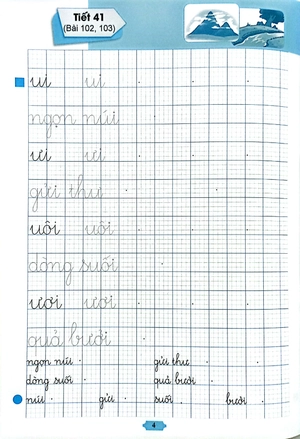 Tiết 41
(Bài 102, 103)
ui ui
ngọn núi
ưi ưi
gửi thư
uôi uôi
dòng suối
ươi ươi
quả bưởi
ngọn núi gửi thư
dòng suối quả bưởi
núi gửi suối bưởi
4